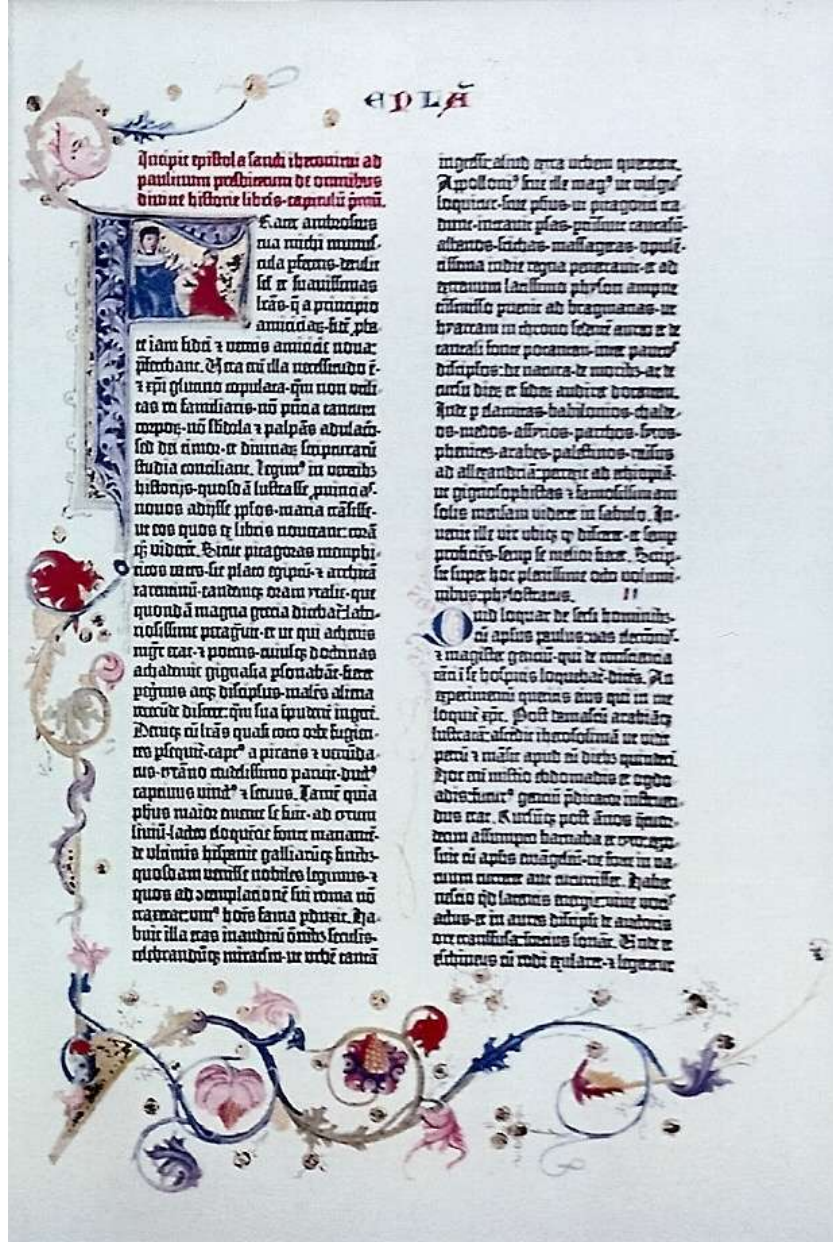 EPLA̅
Incipit epistola sancti iheronimi ad
paulinum presbiterum de omnibus
divine historie libris·capitulū pmū.
Frater ambrosius
tua michi munus-
cula pferens·detulit
sil' et suavissimas
lrās·q̄ a principio
amicicia⁊·fidē pba-
te iam fidei ⁊ veteris amicicie nova:
pferebant. Vera eni illa necessitudo ē·
⁊ xpi glutino copulata·qm non utili-
tas rei familiaris·nō pncia tantum
corpo⁊·nō sbdola ⁊ palpās adulacō·
sed dei timor·et divina⁊ scripturarū
studia conciliant. Legim⁹ in veteribʒ
historijs·quosdā lustrasse puincias·
novos adijsse pplos·maria trāsisse·
ut eos quos ex libris noverant: corā
q̄ʒ viderēt. Sicut pitagoras memphi-
ticos vates·sic plato egiptū·⁊ architā
tarentinū·eandemq̄ʒ oram ytalie·que
quondā magna grecia dicebat̄: labo-
riosissime peragvit·et ut qui athenis
mgr̄ erat·⁊ potens·cuiusq̄ʒ doctrinas
achademie gignasia psonabāt·fieret
pegrinus atq̄ʒ discipulus·malēs aliena
verecūde discere: qm sua īpudent̄ ingeri.
Deniq̄ʒ cū lrās quasi toto orbe fugien-
tes psequit̄·capt⁹ a piratis ⁊ venūda-
tus·tyrāno crudelissimo paruit·duct⁹
captivus vinct⁹ ⁊ servus. Tamē quia
phus maior emente se fuit·ad tytum
liviū·lacteo eloquētie fonte manantē·
de ultimis hispanie galliarūq̄ʒ finibʒ·
quosdam venisse nobiles legimus·⁊
quos ad ɔtemplacionē sui roma nō
traxerat: uni⁹ hoīs fama pduxit. Ha-
buit illa etas inauditū ōnibʒ seculis·
celebrandūq̄ʒ miraclm·ut urbē tantā
ingressi: aliud extra urbem quererēt.
Appolloni⁹ sive ille mag⁹ ut vulgus
loquitur·sive phus·ut pitagorici tra-
dunt·intravit psas·ptrāsivit caucasū·
albanos·scithas·massagetas·opulē-
tissima indie regna penetravit·et ad
extremum latissimo physon ampne
trāsmisso puenit ad bragmanas·ut
hyarcam in throno sedentē aureo et de
tantali fonte potantem·inter paucos
discipulos: de natura·de moribʒ·ac de
cursu diei et sideʒ audiret docentem.
Inde p elamitas·babilonios·chalde-
os·medos·assyrios·parthos·syros·
phenices·arabes·palestinos·reversus
ad allexandriā: perrexit ad ethiopiā·
ut gignosophistas ⁊ famosissimam
solis mensam videret in sabulo. In-
venit ille vir ubiq̄ʒ qd̄ disceret·et semp
proficiēs·semp se melior fieret. Scrip-
sit super hoc plenissime octo volumi-
nibus: phylostratus. II
Quid loquar de secli hominibʒ·
cū apsus paulus: vas electionis·
⁊ magister gentiū·qui de conscientia
tāti ī se hospitis loquebat̄·dicēs. An
experimentū queritis eius qui in me
loquit̄ xpc. Post damascū arabiāq̄ʒ
lustratā: ascēdit iherosolimā ut videret
petrū ⁊ māsit apud eū diebʒ quindeci.
Hoc eni misterio ebdomadis et ogdo-
adis: futur⁹ gentiū pdicator instruen-
dus erat. Rursūq̄ʒ post ānos quatu-
ordecim assumpto barnaba et tyto: expo-
suit cū aplis evāgeliū·ne forte in va-
cuum curreret aut cucurrisset. Habet
nescio qd̄ latentis energie: vive vocis
actus·et in aures discipuli de auctoris
ore transfusa: fortius sonat. Unde et
eschineus cū rodi exularet·⁊ legeretur